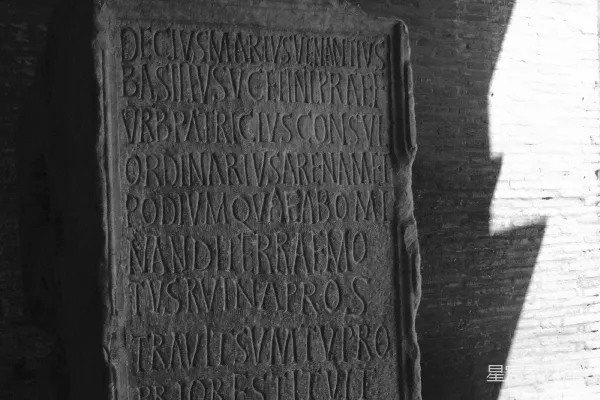 DECIVSMARIVSVENANTIVS
BASILIVSVCETINLPRAEF
VRBPATRICIVSCONSVL
ORDINARIVSARENAMET
PODIVMQVAEABOMI
NANDITERRAEMO
TVSRVINAPROS
TRAVITSVMTVPRO
PRIORESTITVIT
星